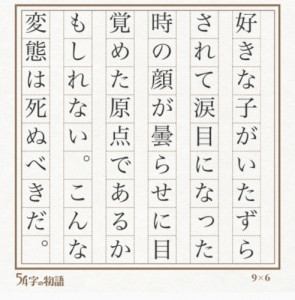 好きな子がいたずら
されて涙目になった
時の顔が曇らせに目
覚めた原点であるか
もしれない。こんな
変態は死ぬべきだ。
54字の物語
9×6